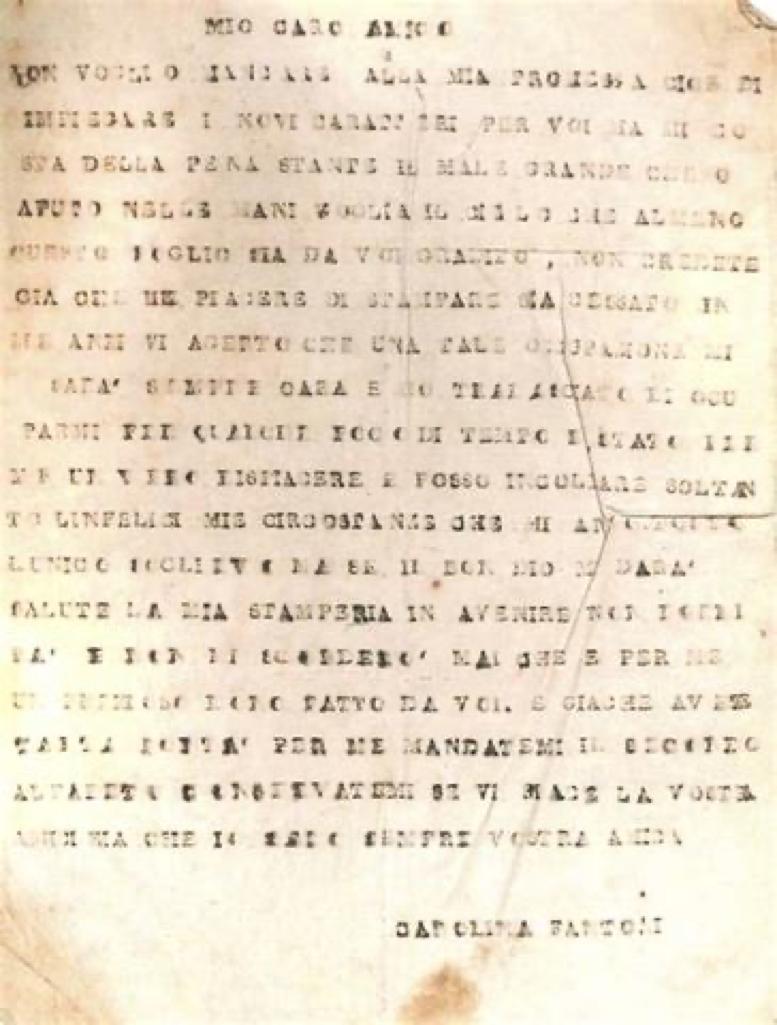 MIO CARO AMICO
NON VOGLIO MANCARE ALLA MIA PROMESSA CIOE DI
IMPIEGARE I NOVI CARATTERI PER VOI MA MI CO
STA DELLA PENA STANTE IL MALE GRANDE CHE O
AVUTO NELLE MANI VOGLIA IL CIELO CHE ALMENO
QUESTO FOGLIO SIA DA VOI GRADITO, NON CREDETE
GIA CHE IL PIACERE DI STAMPARE SIA CESSATO IN
ME ANZI VI ACETTO CHE UNA TALE MI
SARA' SEMPRE CARA E SO TRALASCIATO DI OCU
PARMI PER QUALCHE POCO DI TEMPO E STATO PER
ME UN VERO DISPIACERE E POSSO INCOLPARE SOLTAN
TO LINFELICI MIE CIRCOSTANZE CHE MI AN
LUNICO SOGLIEVO MA SE IL BON DIO MI DARA'
SALUTE LA MIA STAMPERIA IN AVENIRE NON
RA' E NON MI SCORDERO' MAI CHE E PER ME
UN PREZIOSO DONO FATTO DA VOI. E GIACHE AVETE
TANTA BONTA' PER ME MANDATEMI IL SECONDO
ALFABETO CONSERVATEMI SE VI PIACE LA VOSTRA
AMICIZIA CHE IO SARO SEMPRE VOSTRA AMICA
CAROLINA FANTONI